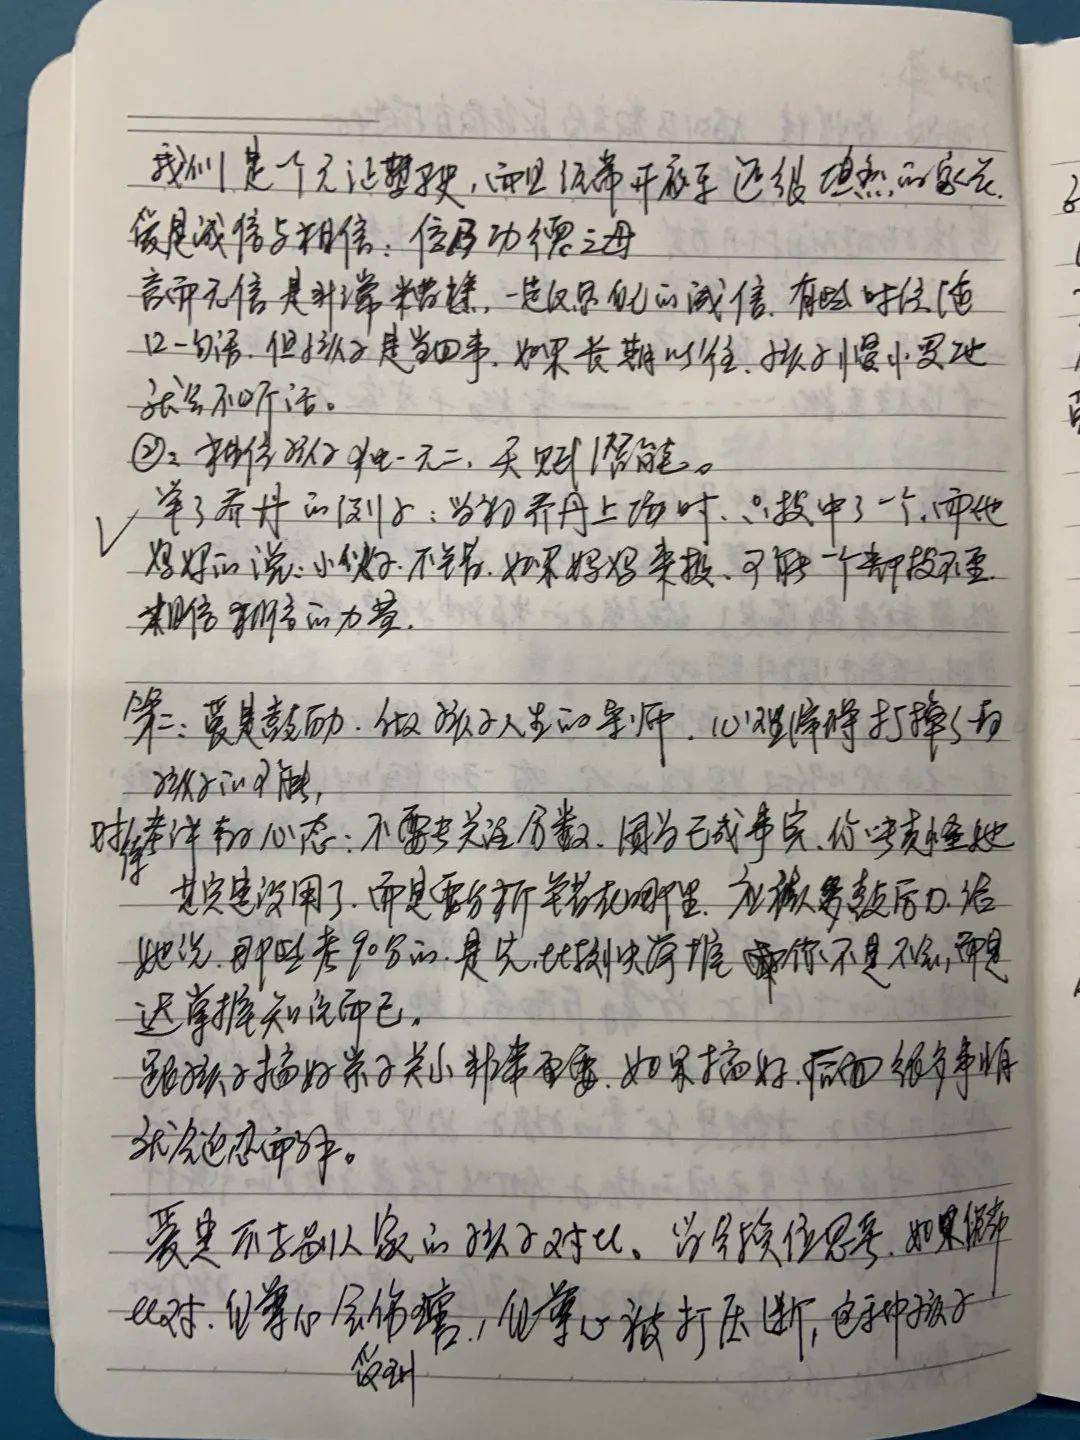 我们是一个无证驾驶,而且经常开夜车还很坦然的家长.
爱是诚信与相信:信乃功德之母
言而无信是非常糟糕,一定仅尽自己的诚信.有些时候随
口一句话.但孩子是当回事.如果长期以往.孩子慢慢地
就会不听话。
②:相信孩子独一无二,天赋潜能。
举了乔丹的例子:当初乔丹上场时.只投中了一个.而他
妈妈的说:小伙子.不错.如果妈妈来投、可能一个都投不至.
相信相信的力量.
第二:爱是鼓励.做孩子人生的导师.心理障碍打掉了
孩子的可能,
对待考详的心态:不要去关注分数.因为已成事实.你责怪她
其实是没用了.而是要分析 错在哪里.应该多鼓励.给
她说.那些考90分的.是先.比较快掌握 你不是不会,而是
迟掌握知识而已.
跟孩子搞好亲子关小非常重要.如果搞好.后面很多事情
就会迎忍而解。
爱是不去别人家的孩子对比。学会换位思考.如果你都
比对.自尊心会伤害.,自尊心被打压断,这种孩子
受到